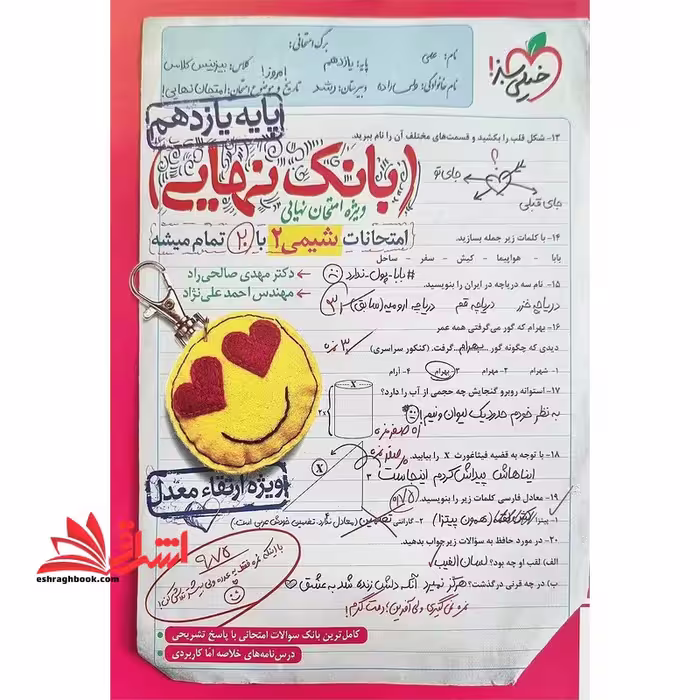 خیلی سبز!
برگ امتحانی:
نام: علمی
پایه: یازدهم
کلاس: بیزینس کلاس
نام خانوادگی:
دبیرستان: رشد
تاریخ و موضوع امتحان: امتحان نهایی!
امروز!
پایه یازدهم
(بانک نهایی)
ویژه امتحان نهایی
امتحانات شیمی ۲ با ۲۰ تمام میشه
دکتر مهدی صالحی‌راد
مهندس احمد علی‌نژاد
۱۳- شکل قلب را بکشید و قسمت‌های مختلف آن را نام ببرید.
؟
جای تو
جای قبلی
۱۴- با کلمات زیر جمله بسازید.
بابا - هواپیما - کیش - سفر - ساحل
#بابا-پول-ندارد
۱۵- نام سه دریاچه در ایران را بنویسید.
دریاچه خزر دریاچه قم دریاچه ارومیه (سابق)
۱۶- بهرام که گور می‌گرفتی همه عمر
دیدی که چگونه گور بهرام گرفت. (کنکور سراسری)
۱- شهرام ۲- مهرام ۳- بهرام ۴- آرام
۱۷- استوانه روبرو گنجایش چه حجمی از آب را دارد؟
به نظر خودم حدود یک لیوان و نیم!
X
2X
۱۸- با توجه به قضیه فیثاغورث X را بیابید.
ایناهاش پیداش کردم اینجاست
X
۱۹- معادل فارسی کلمات زیر را بنویسید.
۱- پیتزا (همون پیتزا) ۲- گارانتی تضمین (معادل ندارد. تضمین خودش عربی است)
۲۰- در مورد حافظ به سوالات زیر جواب بدهید.
الف) لقب او چه بود؟ لسان الغیب
ب) در چه قرنی درگذشت؟ هرگز نمیرد آنکه دلش زنده شد به عشق
نمره نمی‌گیری ولی آفرین! دمت گرم!
۹/۷۵
ویژه ارتقاء معدل
اشراق
eshraghbook.com
کامل‌ترین بانک سوالات امتحانی با پاسخ تشریحی
درس‌نامه‌های خلاصه اما کاربردی